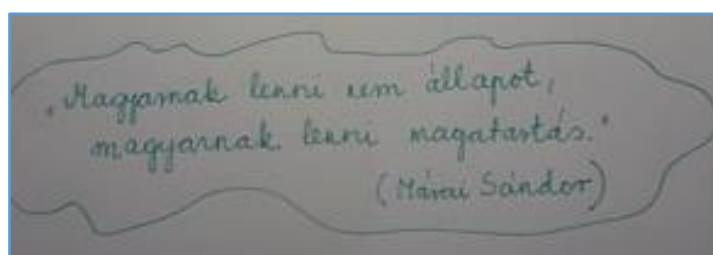 „Magyarnak lenni nem állapot,
magyarnak lenni magatartás."
(Márai Sándor)